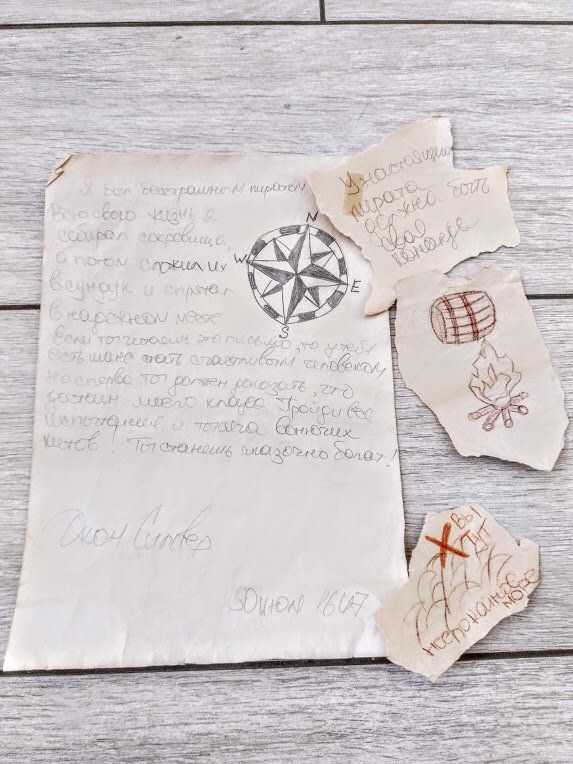 Я был бесстрашным пиратом
Всю свою жизнь я
собирал сокровища,
а потом сложил их
в сундук и спрятал
в надежном месте
Если ты читаешь это письмо, то у тебя
есть шанс стать счастливым человеком
Но сперва ты должен доказать, что
достоин моего клада. Пройди все
испытания и тысяча вонючих
китов! Ты станешь сказочно богат!
Джон Сильвер
30 июля 1647
N
W
E
S
У настоящего
пирата
должна быть
своя
команда
ВЫ
ТУТ
неспокойное
море